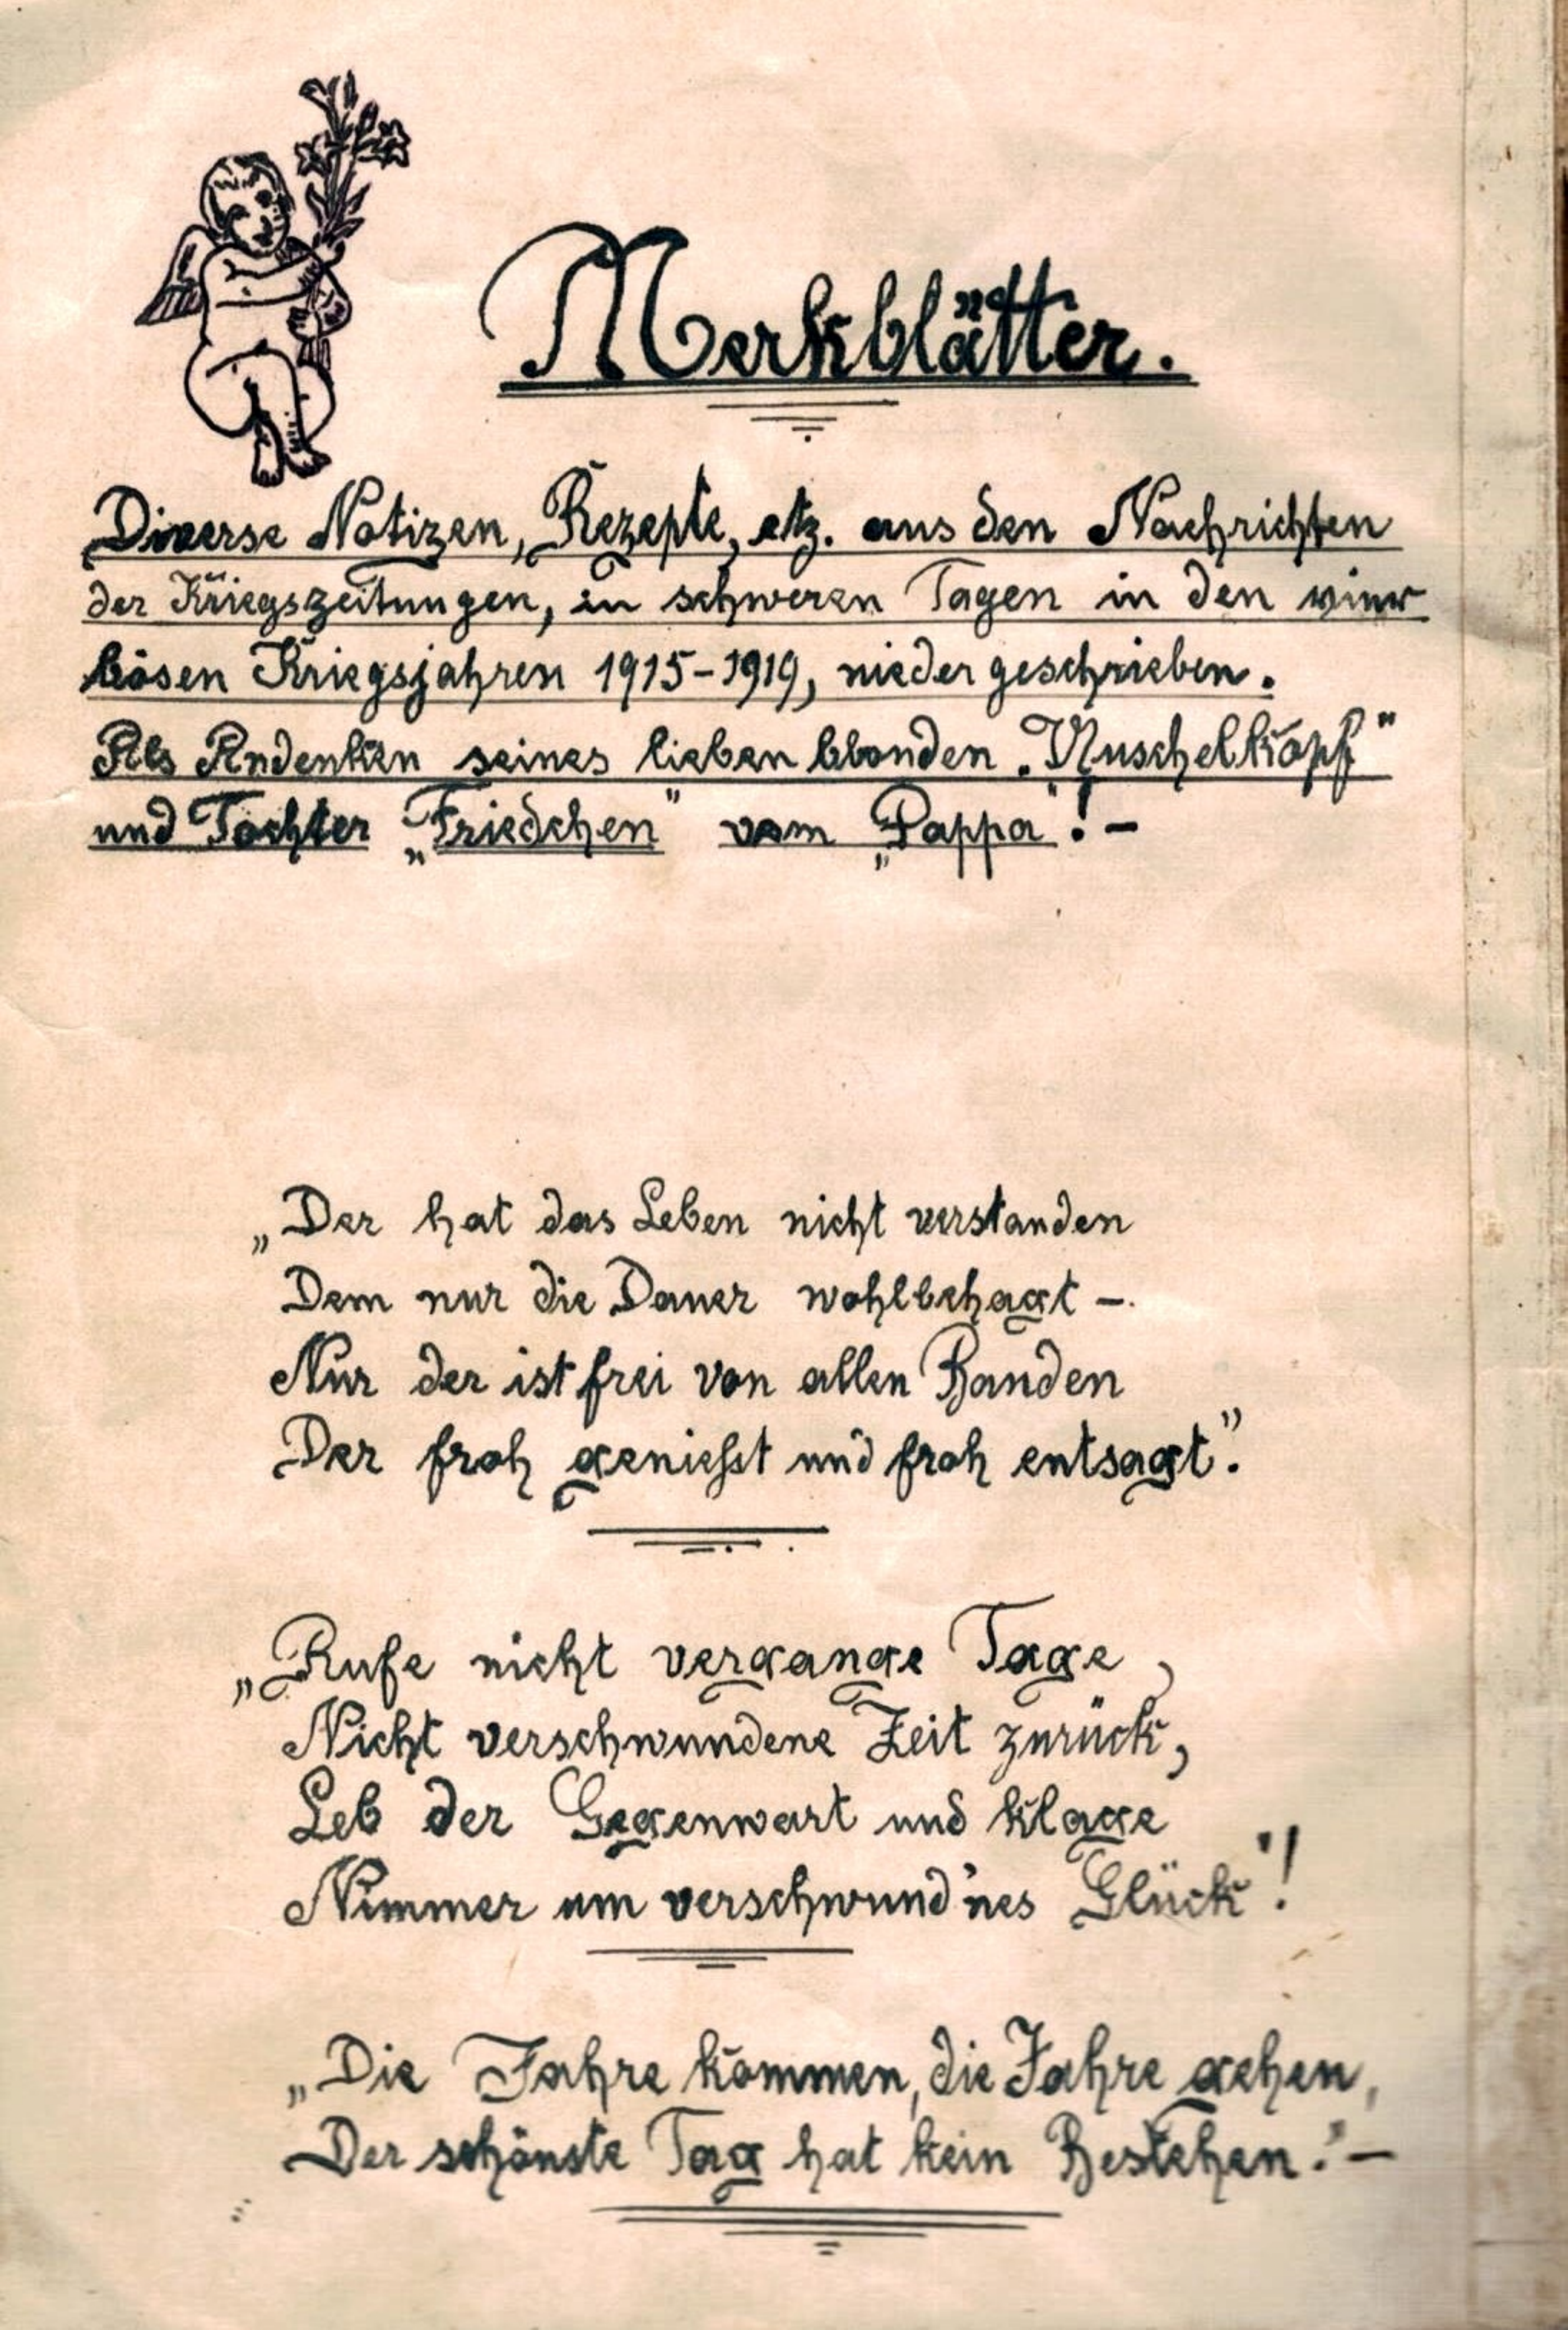 Merkblätter.
Diverse Notizen, Rezepte, etz. aus den Nachrichten
der Kriegszeitungen, in schweren Tagen in den
bösen Kriegsjahren 1915-1919, niedergeschrieben.
Als Andenken seines lieben blonden „Nuschelkopf"
und Tochter „Friedchen" vom „Pappa"! -
„Der hat das Leben nicht verstanden
Dem nur die Dauer wohlbehagt -.
Nur der ist frei von allen Banden
Der froh geniesst und froh entsagt".
„Rufe nicht vergange Tage,
Nicht verschwundene Zeit zurück,
Leb der Gegenwart und klage
Nimmer um verschwund'nes Glück"!
„Die Jahre kommen, die Jahre gehen,
Der schönste Tag hat kein Bestehen." -